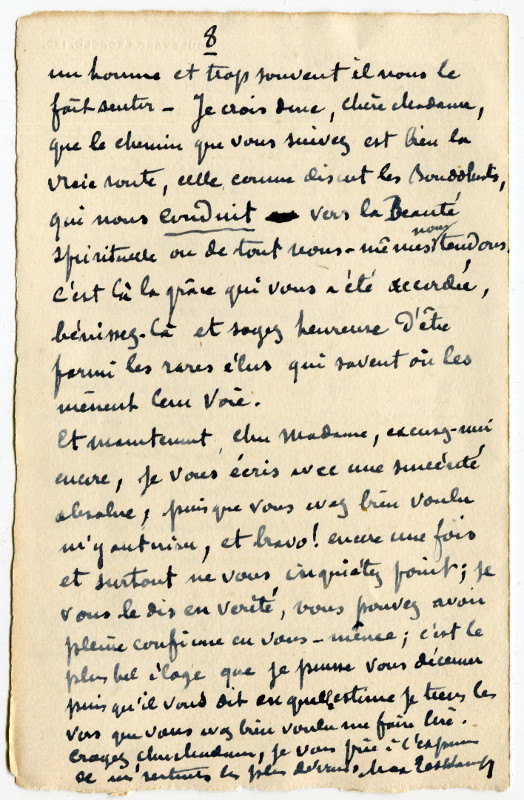 8
un homme et trop souvent il nous le
fait sentir – Je crois donc, chère Madame,
que le chemin que vous suivez est bien la
vraie route, celle, comme disent les Bouddhistes,
qui nous conduit vers la Beauté
spirituelle ou de tout nous-mêmes nous tendons.
C'est là la grâce qui vous a été accordée,
bénissez-là et soyez heureuse d'être
parmi les rares élus qui savent où les
mènent leur Voie.
Et maintenant, chère Madame, excusez-moi
encore, je vous écris avec une sincérité
absolue, puisque vous avez bien voulu
m'y autoriser, et bravo! encore une fois
et surtout ne vous inquiétez point; je
vous le dis en vérité, vous pouvez avoir
pleine confiance en vous-même; c'est le
plus bel éloge que je puisse vous décerner
puisqu'il vous dit en quelle estime je tiens les
vers que vous avez bien voulu me faire lire.
Croyez chère Madame, je vous prie à l'expression
de mes sentiments les plus dévoués Max Elskamp